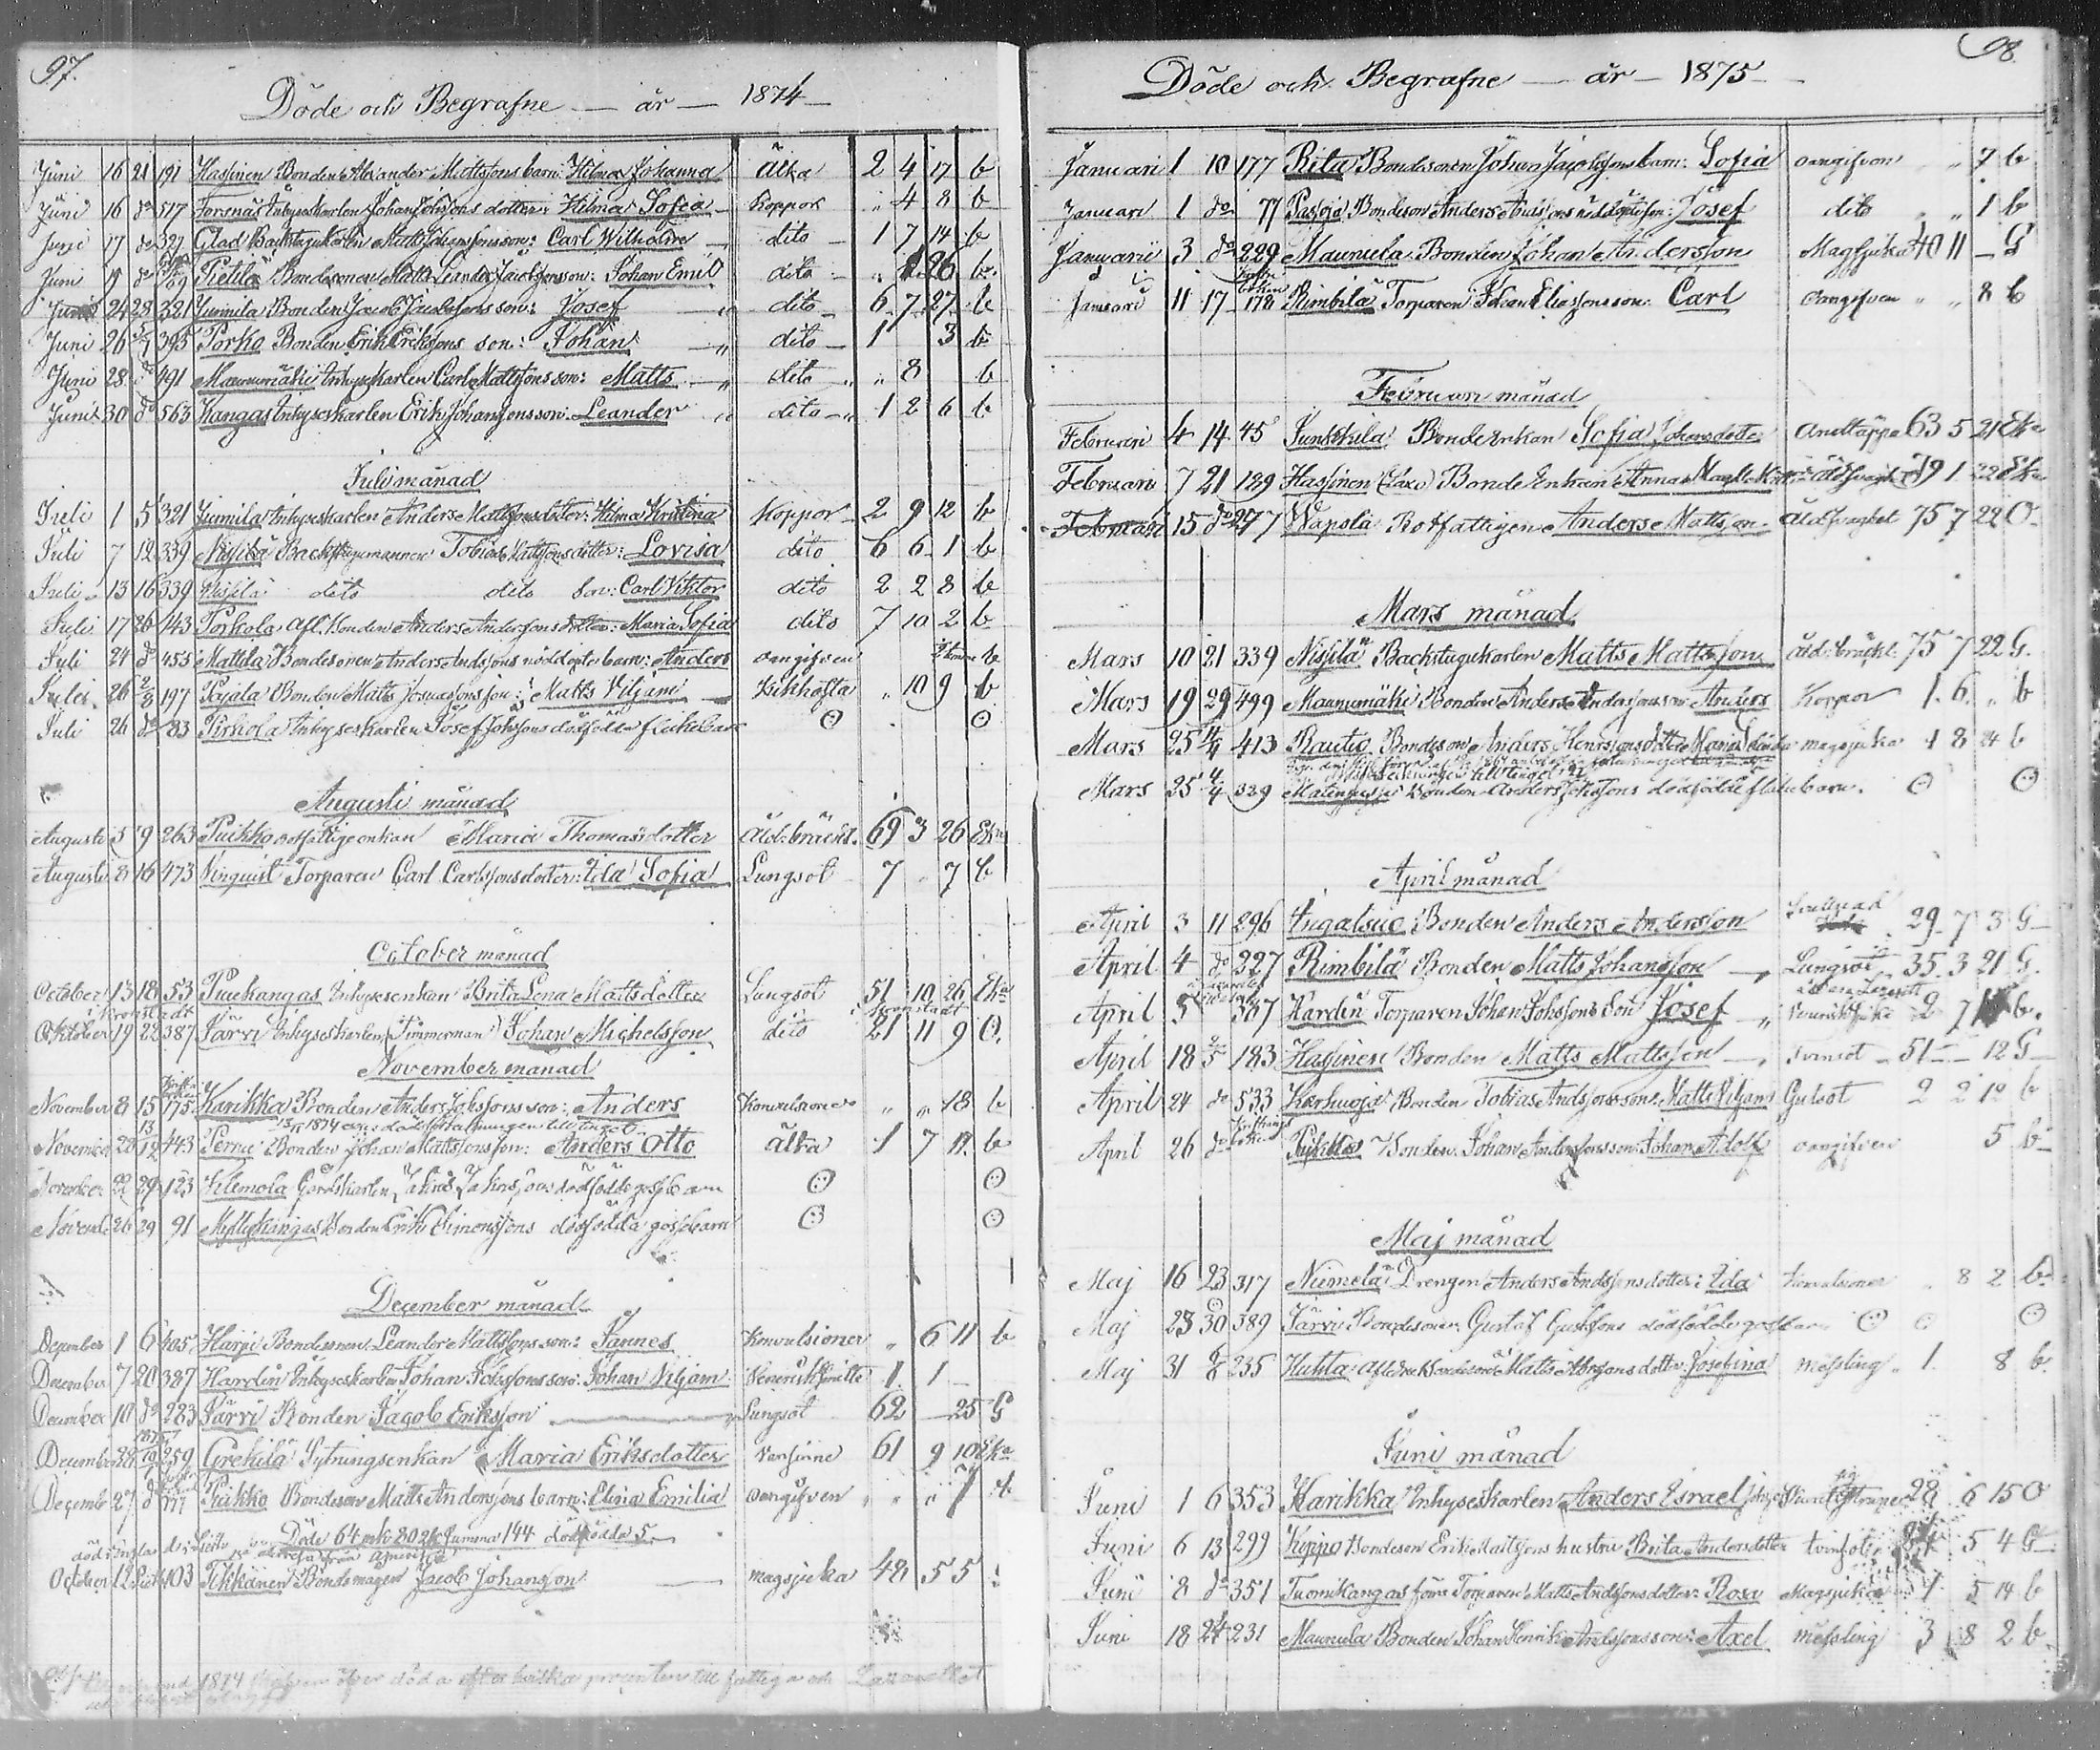 97.
Döde och Begrafne — år — 1874 —
Juni 16 21 191 Hassinen Bonden Alexander Mattssons barn: Hilma Johanna Älta 2 4 17 b
Juni 16 do 517 Forsnäs Inhyseskarlen Johan Johssons dotter: Hilma Sofia Koppor „ 4 8 b
Juni 17 do 327 Glad Backstugukarlen Matts Johanssons son: Carl Wilhelm dito 1 7 14 b
Juni 19 do Pietilä Bondesonen Matts Leander Jacobssons son: Johan Emil dito „ 1 26 b.
Juni 24 28 321 Junnila Bonden Jacob Jacobssons son: Josef dito 6 7 27 b
Juni 26 5/7 395 Porko Bonden Erik Erikssons son: Johan dito 1 3 b
Juni 28 do 491 Maunumäki Inhyseskarlen Carl Mattssons son: Matts dito „ 8 b
Juni 30 do 563 Kangas Inhyseskarlen Erik Johanssons son: Leander dito 1 2 6 b
Juli månad
Juli 1 5 321 Junnila Inhyseskarlen Anders Mattssons dotter: Hilma Kristina Koppor 2 9 12 b
Juli 7 12 339 Nissilä Backstugumannen Tobias Mattssons dotter: Lovisa dito 6 6 1 b
Juli 13 16 339 Nissilä dito dito son: Carl Viktor dito 2 2 8 b
Juli 17 26 143 Porkola afl. Bonden Anders Anderssons dotter: Maria Sofia dito 7 10 2 b
Juli 24 do 455 Mattila Bondesonen Anders Andssons nöddöpte barn: Anders oangifven b
Juli 26 2/8 197 Rajala Bonden Matts son: Matts Viljam Kikhosta „ 10 9 b
Juli 26 do 83 Pirkola Inhyseskarlen Josef Johssons dödfödda flickebarn
Augusti månad
Augusti 5 9 263 Puikko rotfattigenkan Maria Thomasdotter Åld:bräckl. 69 3 26 Eka
Augusti 8 16 473 Ninquist Torparen Carl Carlssons dotter: Ida Sofia Lungsot 7 „ 7 b
October månad
October 13 18 53 Puukangas Inhysesenkan Brita Lena Mattsdotter Lungsot 51 10 26 Eka
i Kronstadt i Kronstadt
Oktober 19 22 387 Järvi Inhyseskarlen (Timmerman) Johan Michelsson dito 21 11 9 O.
November månad
November 8 15 175 Karikka Bonden Anders Johssons son: Anders Konvulsioner „ „ 18 b
November 28 13/12 443 Pernu Bonden Johan Mattssons son: Anders Otto älta 1 7 12 b
November 22 29 123 Klemola Gårdskarlen dödfödda gossebarn
Novemb. 26 29 91 Myllykangas Bonden Erik Simonssons dödfödda gossebarn
December månad
December 1 6 405 Harju Bondesonen Leander Mattssons son: Jannes Konvulsioner „ 6 11 b
December 7 20 387 Hardin Inhyseskarlen Johan Johssons son: Johan Viljam Venerisk 1 1
December 10 do 283 Järvi Bonden Jacob Eriksson Lungsot 62 — 25 G
December 28 259 Grekilä Sytningsenkan Maria Eriksdotter 61 9 10 Eka
Decemb 27 do 177 Puikko Bondeson Matts Anderssons barn: Elina Emilia oangifven „ „ 7
Döde 64 mk 80 2k Summa 144 dödfödda 5
October 12 403 Tikkanen Bondemagen Jacob Johansson magsjuka 48 5 5
98.
Döde och Begrafne — år — 1875 —
Januari 1 10 177 Rita Bondesonen Johan Jacobssons barn: Sofia oangifven „ „ 7 b
Januari 1 do 77 Pasoja Bondeson Anders Andssons nöddöpte son: Josef dito „ „ 1 b
Januari 3 do 229 Maunula Bonden Johan Andersson Magsjuka 40 11 — G
Januari 11 17 178 Rimbilä Torparen Johan Eliassons son: Carl oangifven „ „ 8 b
Februari månad
Februari 4 14 45 Junkkila Bonde Enkan Sofia Johansdotter Andtäppa 63 5 21 Eka
Februari 7 21 189 Hassinen Bonde Enkan Anna ålds:svaghet 79 1 22 Eka
Februari 15 do 277 Wapola Rotfattigen Anders Mattsson åldsvaghet 75 7 22 O
Mars månad
Mars 10 21 339 Nissilä Backstugukarlen Matts Mattsson åld:bräckl: 75 7 22 G.
Mars 19 29 499 Maunumäki Bonden Anders Anderssons son Anders Koppor 1. 6. „ b
Mars 25 4/4 413 Rautio Bondeson Anders Henrssons dotter Maria magsjuka 1 8 24 b
Mars 25 4/4 329 Bonden Anders Johssons dödfödda flickebarn.
April månad
April 3 11 296 Ingalsuo Bonden Anders Andersson 29 7 3 G
April 4 do 227 Rimbilä Bonden Matts Johansson Lungsot 35 3 21 G.
April 5 387 Hardin Torparen Johan Johssons son Josef Venerisk sjuka 2 7 b.
April 18 2/5 183 Hassinen Bonden Matts Mattsson tvinsot 51 — 12 G
April 24 do 533 Karhuoja Bonden Tobias Andssons son: Matts Viljam Gulsot 2 2 12 b
April 26 do Puikko Bonden Johan Anderssons son: Johan Adolf oangifven 5 b
Maj månad
Maj 16 23 317 Niemelä Drengen Anders Andssons dotter: Ida Konvulsioner „ 8 2 b
Maj 23 30 389 Järvi Bondesonen Gustaf Gustssons dödfödde gossbarn
Maj 31 6/6 235 Huhta aflidne Bondeson Matts dotter: Josefina Messling 1. 8 b.
Juni månad
Juni 1 6 353 Karikka Inhyseskarlen Anders Israel 28 6 15 O
Juni 6 13 299 Koppo Bondeson Erik Mattssons hustru Brita Andersdotter tvinsot 5 4 G
Juni 8 do 351 Tuomikangas förre Torparen Matts Andssons dotter: Rosa Magsjuka 1 5 14 b
Juni 18 24 231 Maunula Bonden Johan Henrik Andssons son: Axel Messling 3 8 2 b